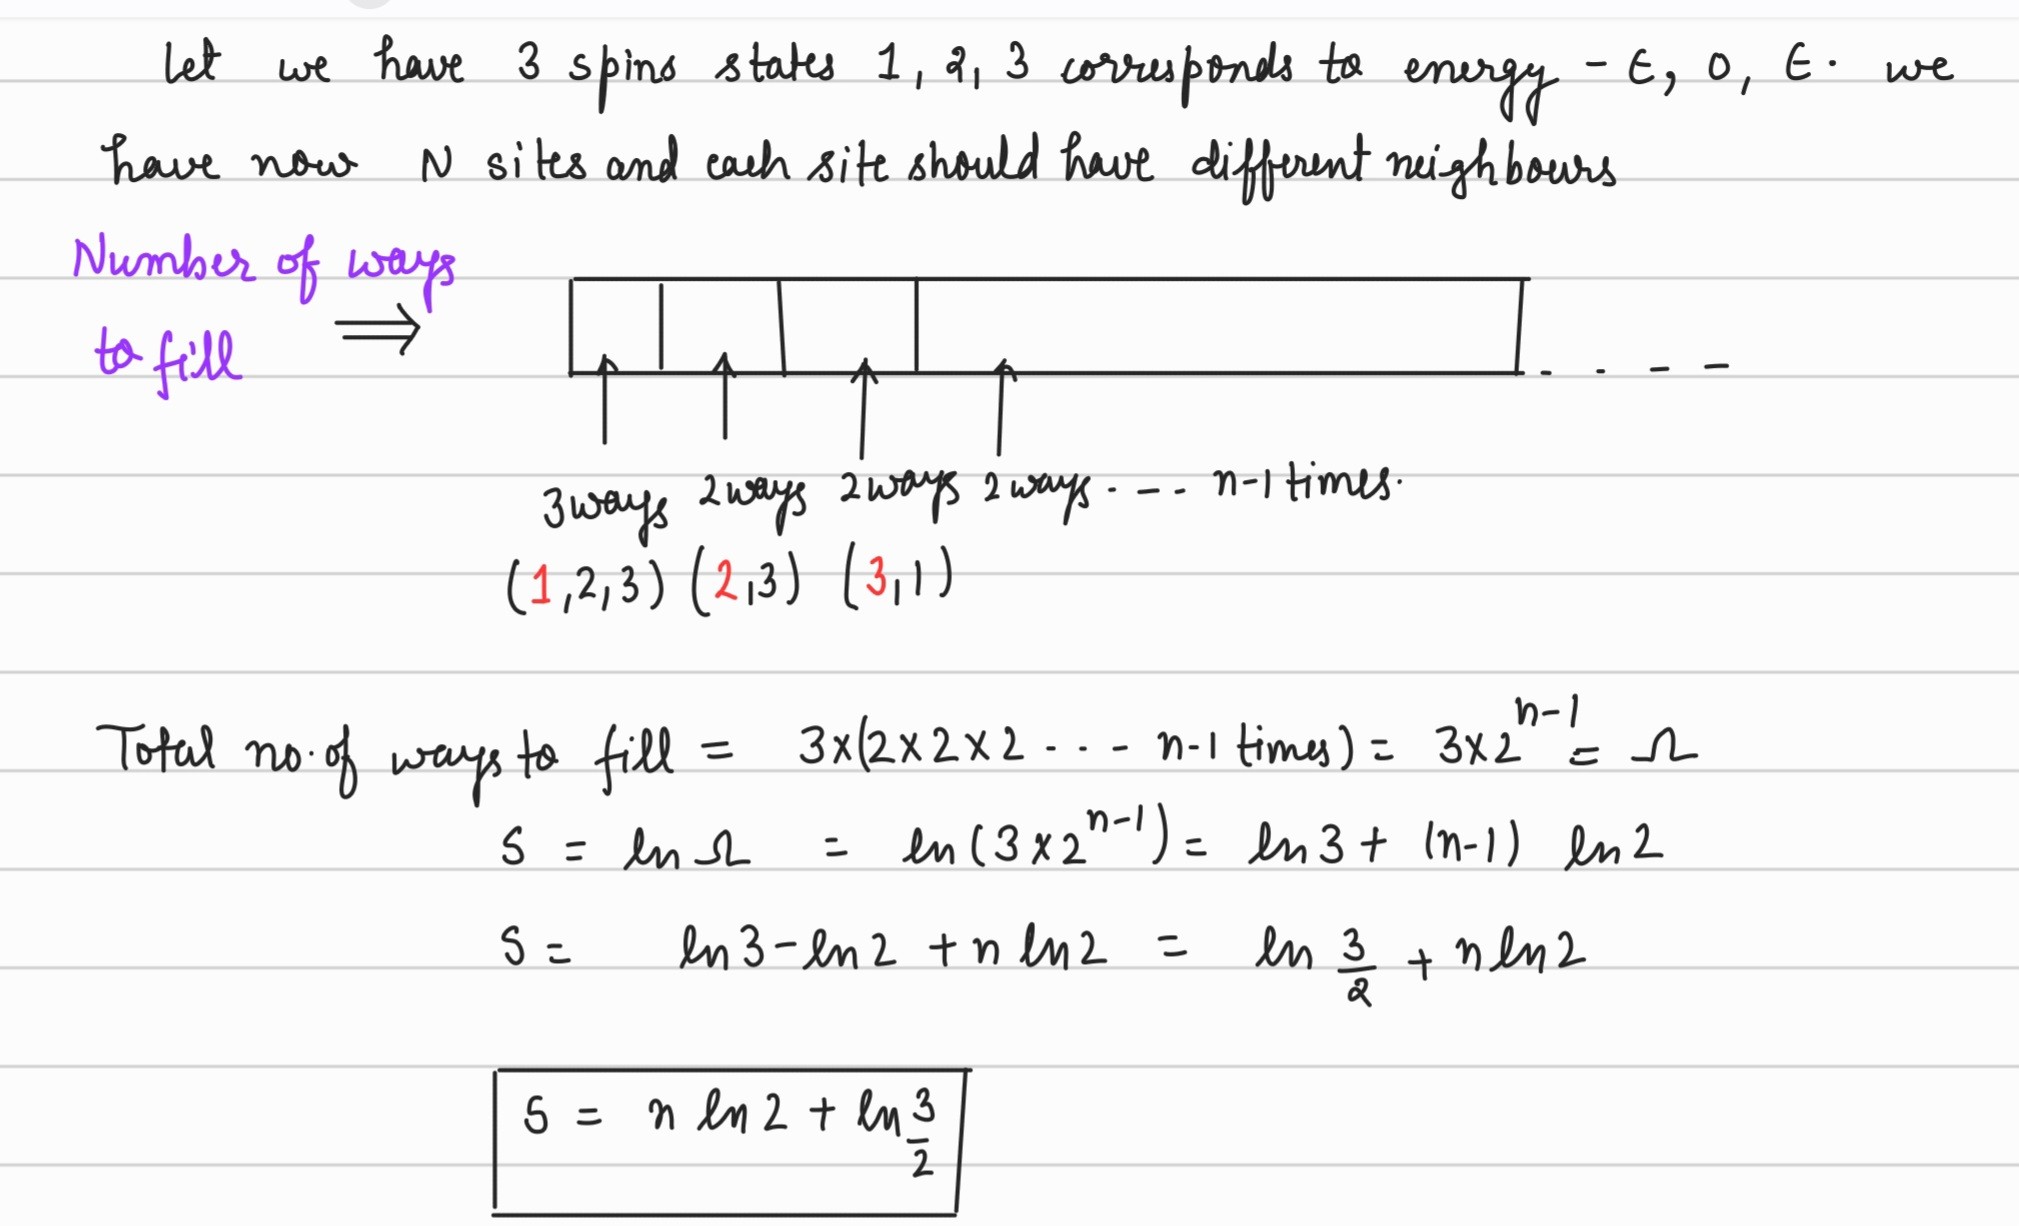 Let we have 3 spins states 1, 2, 3 corresponds to energy - ϵ, 0, ϵ. we
have now N sites and each site should have different neighbours
Number of ways
to fill ⇒
. . - -
3ways 2ways 2ways 2ways. - - - n-1 times.
(1,2,3) (2,3) (3,1)
Total no. of ways to fill = 3x(2x2x2 - - - n-1 times) = 3x2^{n-1} = Ω
S = ln Ω = ln(3x2^{n-1}) = ln3 + (n-1) ln2
S = ln3 - ln2 + n ln2 = ln 3/2 + n ln2
S = n ln2 + ln 3/2